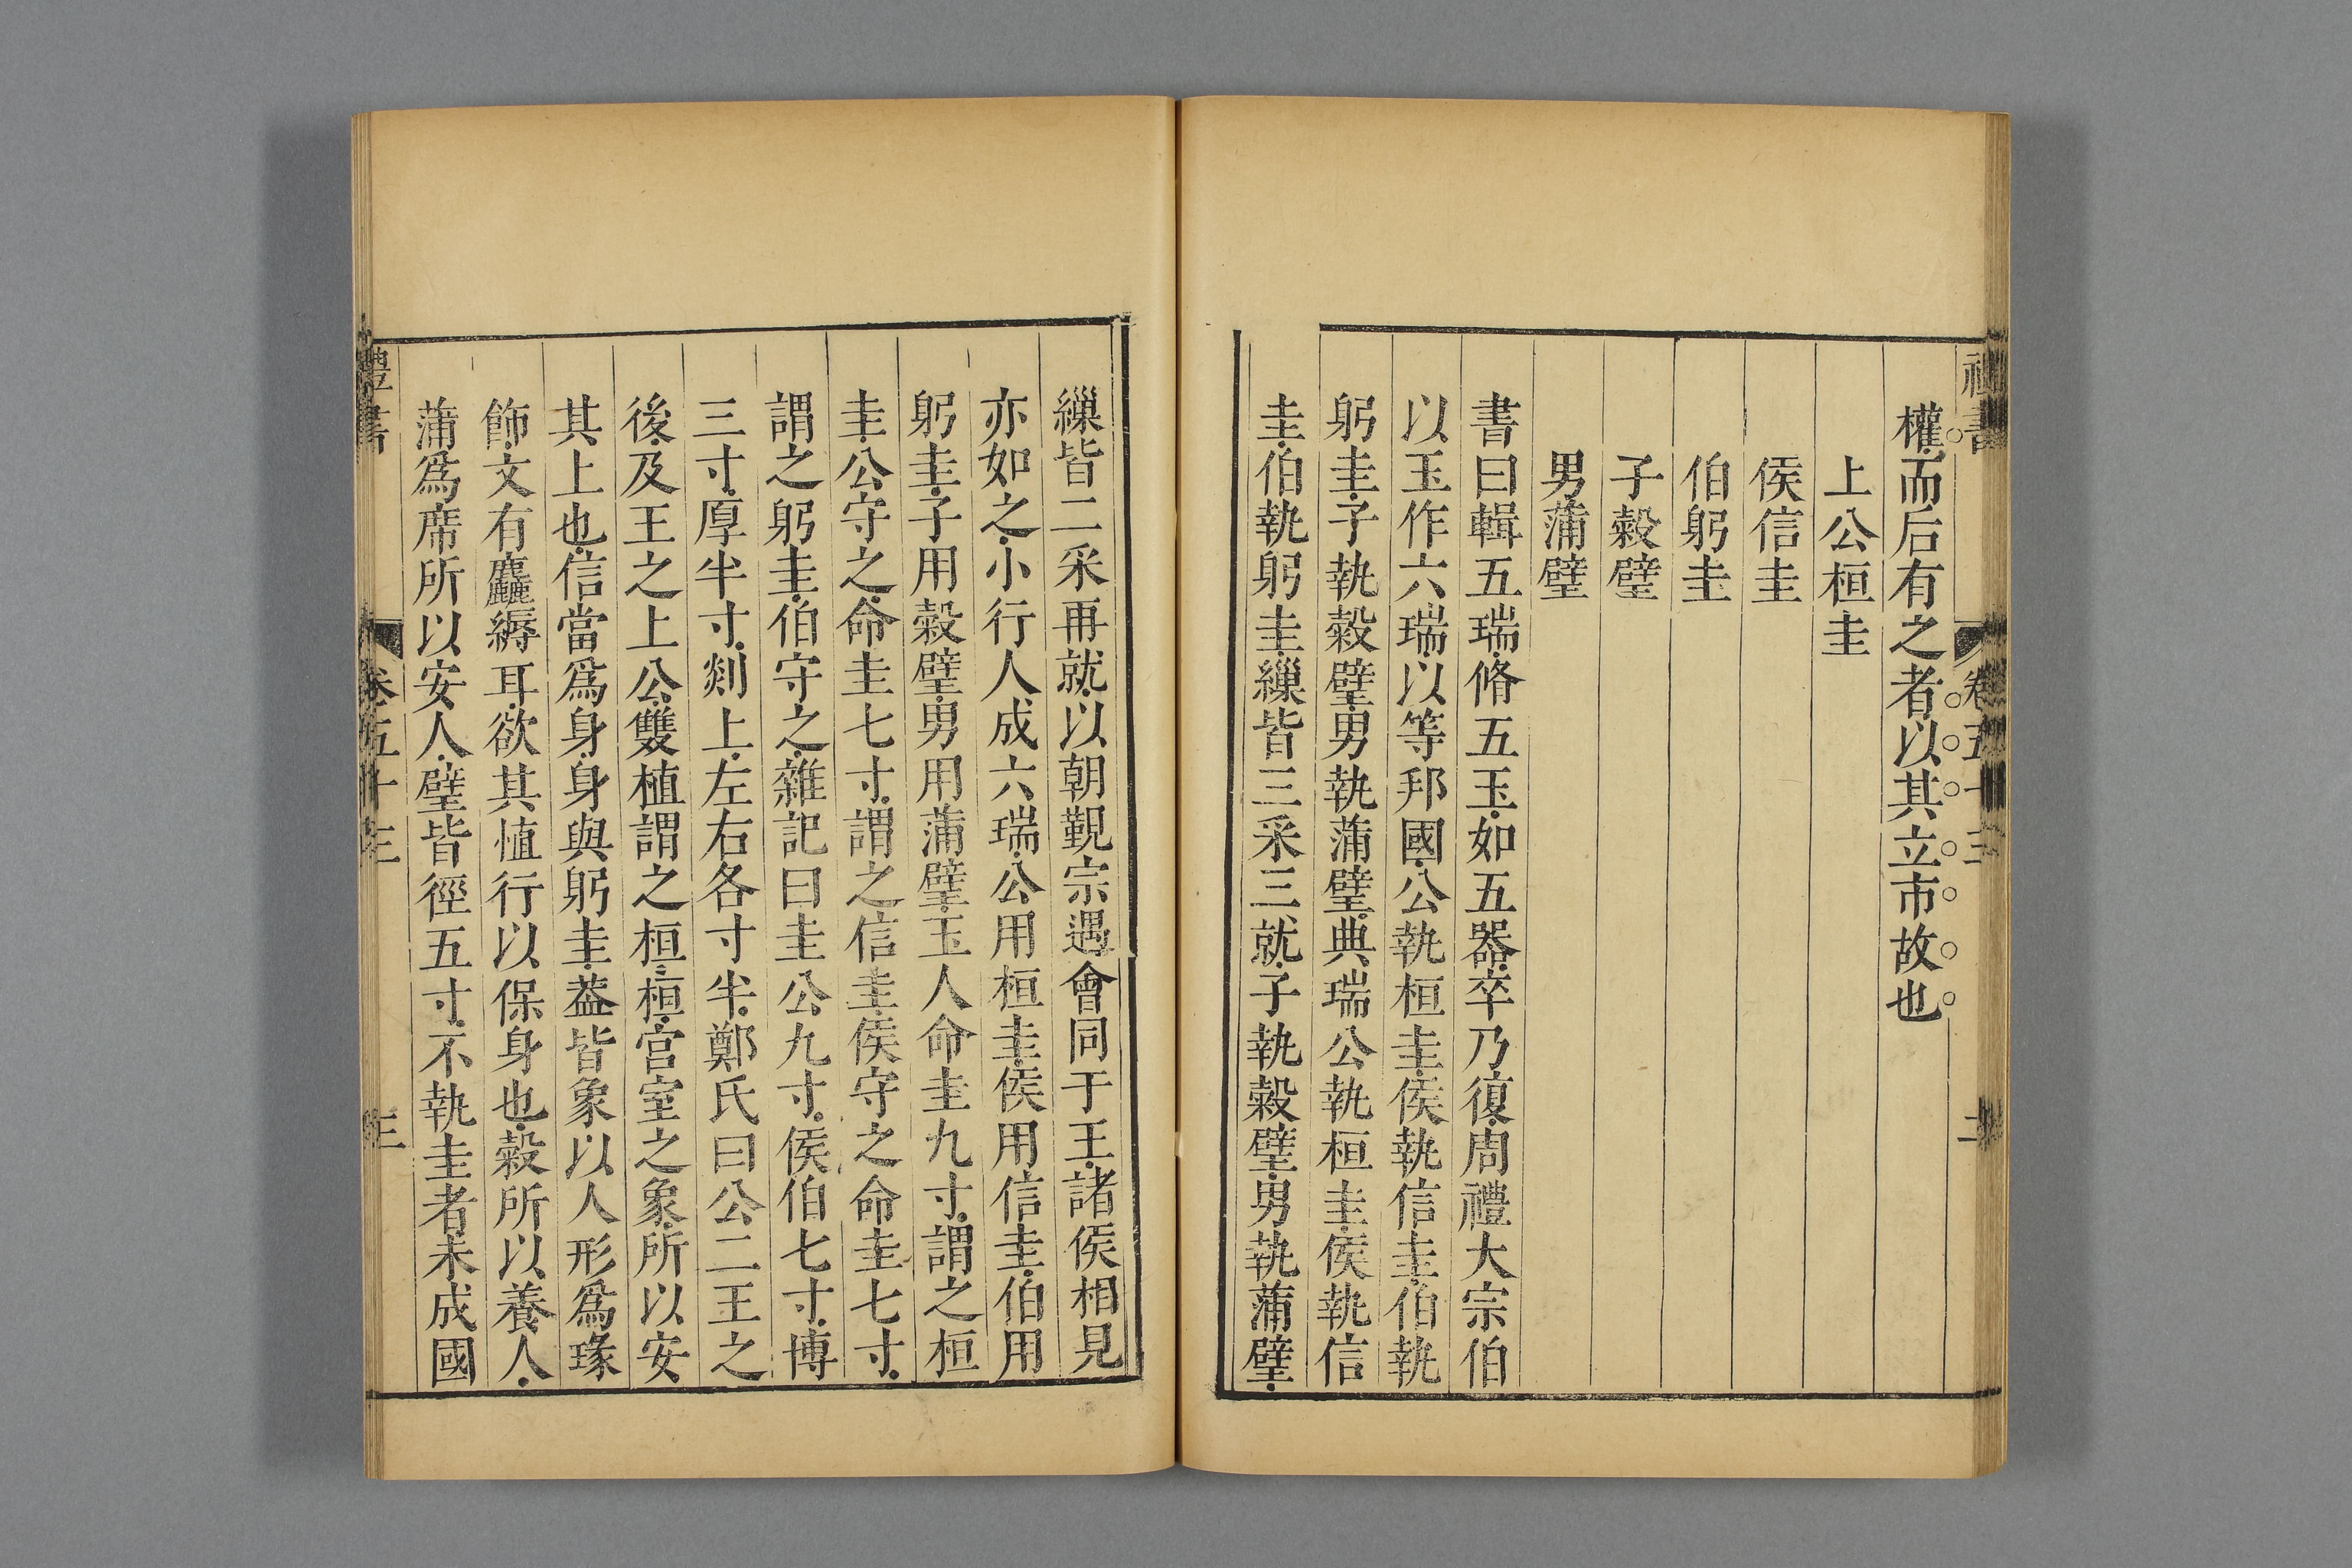 禮書 卷五十三 二
權而后有之者以其立市故也
上公桓圭
侯信圭
伯躬圭
子榖璧
男蒲璧
書曰輯五瑞脩五玉如五器卒乃復周禮大宗伯
以玉作六瑞以等邦國公執桓圭侯執信圭伯執
躬圭子執榖璧男執蒲璧典瑞公執桓圭侯執信
圭伯執躬圭繅皆三采三就子執榖璧男執蒲璧
繅皆二采再就以朝覲宗遇會同于王諸侯相見
亦如之小行人成六瑞公用桓圭侯用信圭伯用
躬圭子用榖璧男用蒲璧玉人命圭九寸謂之桓
圭公守之命圭七寸謂之信圭侯守之命圭七寸
謂之躬圭伯守之雜記曰圭公九寸侯伯七寸博
三寸厚半寸剡上左右各寸半鄭氏曰公二王之
後及王之上公雙植謂之桓桓宫室之象所以安
其上也信當爲身身與躬圭葢皆象以人形爲瑑
飾文有麤縟耳欲其慎行以保身也榖所以養人
蒲爲席所以安人璧皆徑五寸不執圭者未成國
禮書 卷五十三 三